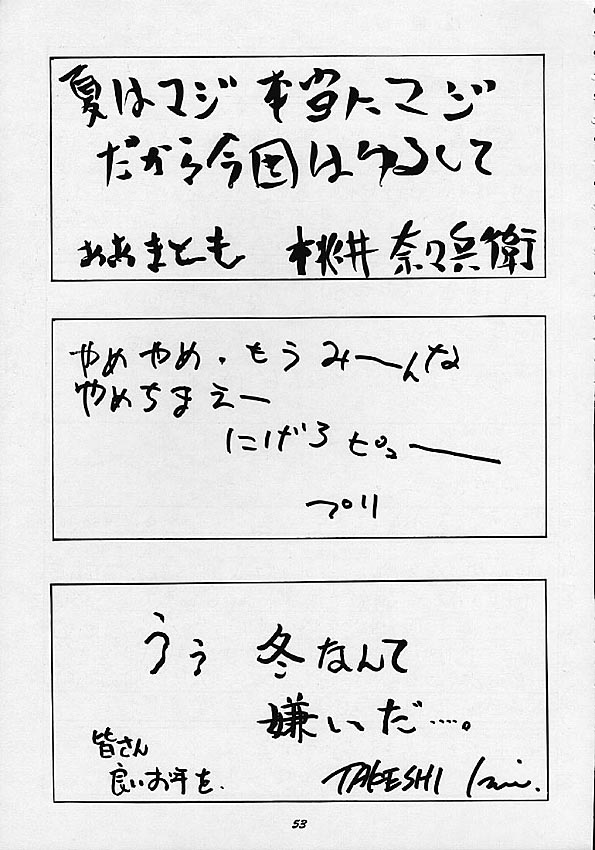 夏はマジ 本当にマジ
だから今回はゆるして
ああまとも 桃井 奈々兵衛
やめやめ。もうみーんな
やめちまえー
にげろ ピューー
プリ
うぅ 冬なんて
嫌いだ……。
皆さん
良いお年を。
TAKESHI
53